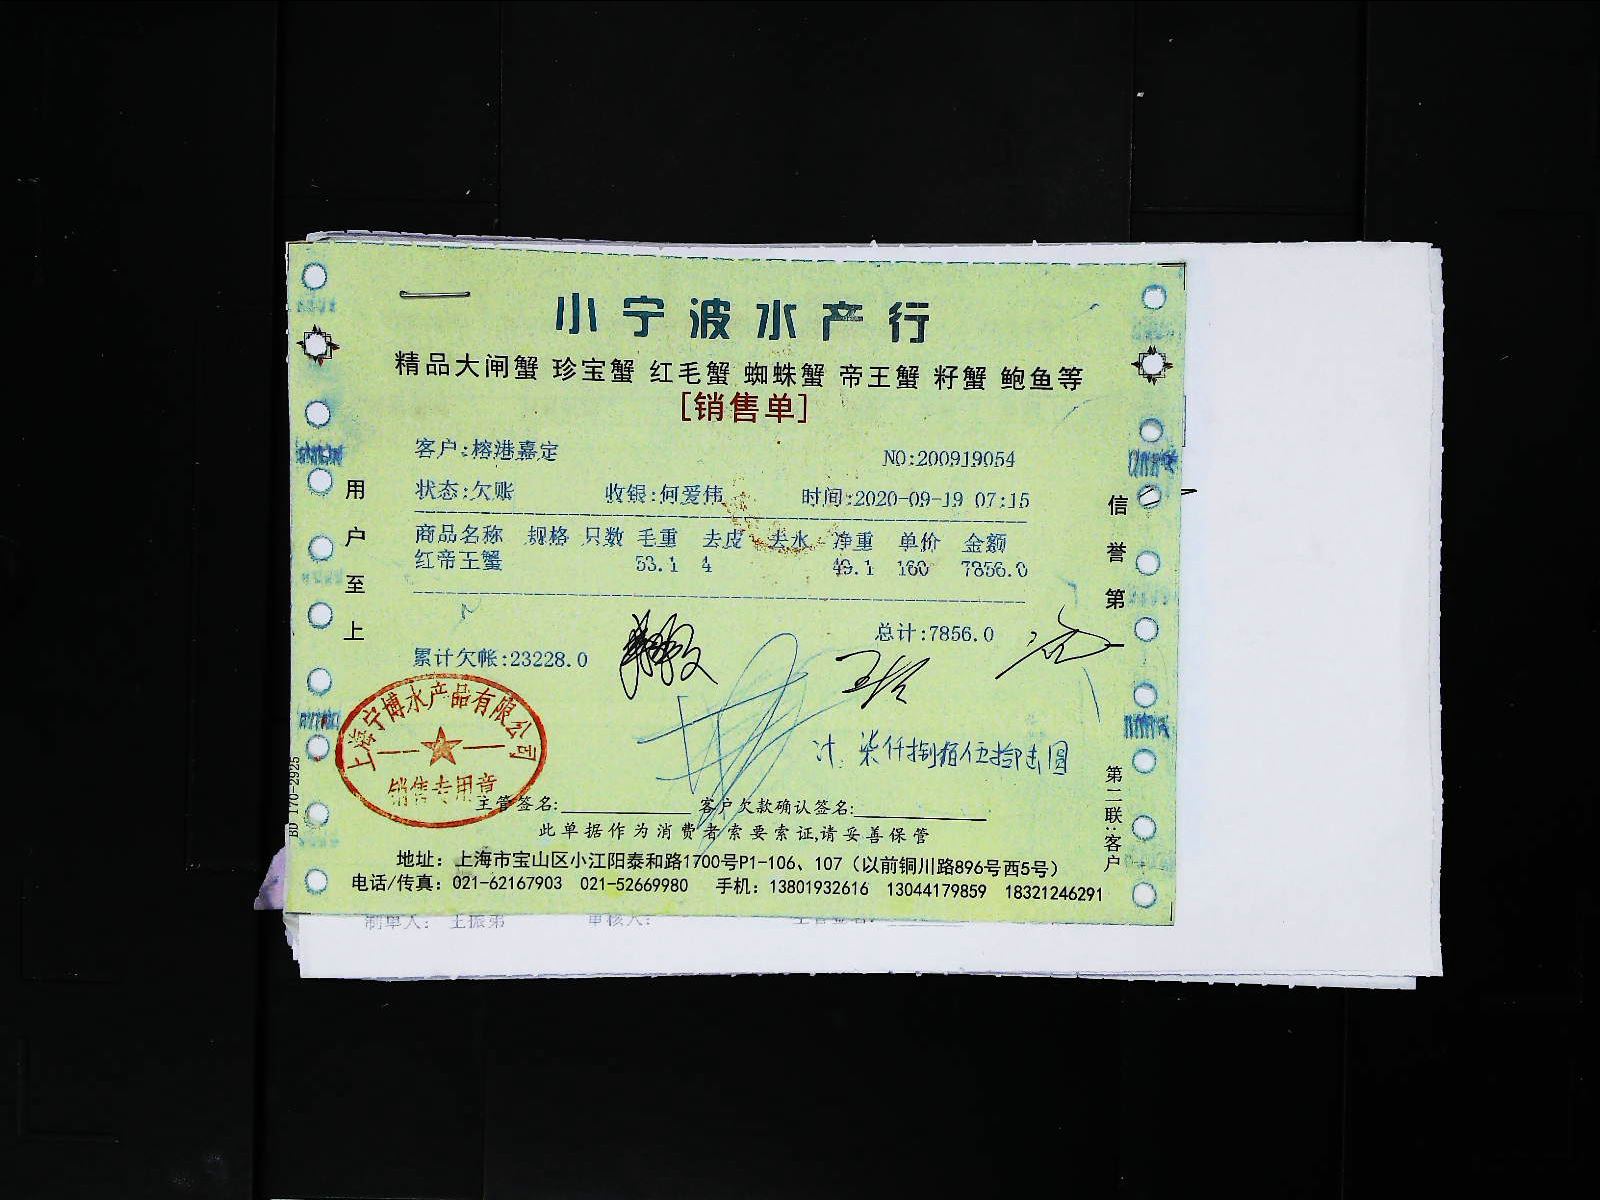 小宁波水产行
精品大闸蟹 珍宝蟹 红毛蟹 蜘蛛蟹 帝王蟹 籽蟹 鲍鱼等
[销售单]
客户:榕港嘉定
NO:200919054
状态:欠账 收银:何爱伟 时间:2020-09-19 07:15
商品名称 规格 只数 毛重 去皮 去水 净重 单价 金额
红帝王蟹 53.1 4 49.1 160 7856.0
总计:7856.0
累计欠帐:23228.0
计 柒仟捌佰伍拾陆圆
上海宁博水产品有限公司
销售专用章
主管签名: 客户欠款确认签名:
此单据作为消费者索要索证,请妥善保管
地址：上海市宝山区小江阳泰和路1700号P1-106、107（以前铜川路896号西5号）
电话/传真：021-62167903 021-52669980 手机：13801932616 13044179859 18321246291
用户至上
信誉第一
第二联:客户
BD 170-2925
制单人： 王振弟 审核人：